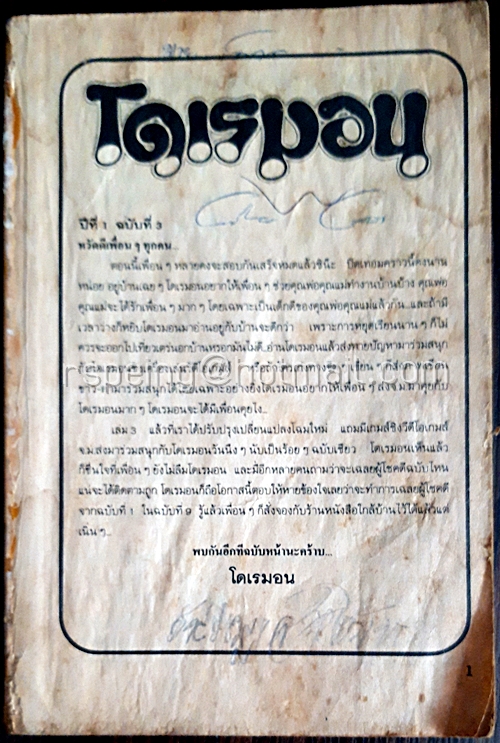 โดเรมอน
ปีที่ 1 ฉบับที่ 3
หวัดดีเพื่อน ๆ ทุกคน...
ตอนนี้เพื่อน ๆ หลายคงจะสอบกันเสร็จหมดแล้วซินะ ปิดเทอมคราวนี้คงนาน
หน่อย อยู่บ้านเฉย ๆ โดเรมอนอยากให้เพื่อน ๆ ช่วยคุณพ่อคุณแม่ทำงานบ้านบ้าง คุณพ่อ
คุณแม่จะได้รักเพื่อน ๆ มาก ๆ โดยเฉพาะเป็นเด็กดีของคุณพ่อคุณแม่แล้วกัน...และถ้ามี
เวลาว่างก็หยิบโดเรมอนมาอ่านอยู่กับบ้านจะดีกว่า เพราะการหยุดเรียนนาน ๆ ก็ไม่
ควรจะออกไปเที่ยวเตร่นอกบ้านหรอกมันไม่ดี..อ่านโดเรมอนแล้วส่งทายปัญหามาร่วมสนุก
มาร่วมสนุกได้โดยเฉพาะอย่างยิ่งโดเรมอนอยากให้เพื่อน ๆ ส่ง จ.ม.มาคุยกับ
โดเรมอนมาก ๆ โดเรมอนจะได้มีเพื่อนคุยไง...
เล่ม 3 แล้วที่เราได้ปรับปรุงเปลี่ยนแปลงโฉมใหม่ แถมมีเกมส์ชิงวีดีโอเกมส์
จ.ม.ส่งมาร่วมสนุกกับโดเรมอนวันนึง ๆ นับเป็นร้อย ๆ ฉบับเชียว โดเรมอนเห็นแล้ว
ก็ชื่นใจที่เพื่อน ๆ ยังไม่ลืมโดเรมอน และมีอีกหลายคนถามว่าจะเฉลยผู้โชคดีฉบับไหน
แน่จะได้ติดตามถูก โดเรมอนก็ถือโอกาสนี้ตอบให้หายข้องใจเลยว่าจะทำการเฉลยผู้โชคดี
จากฉบับที่ 1 ในฉบับที่ 9 รู้แล้วเพื่อน ๆ ก็สั่งจองกับร้านหนังสือใกล้บ้านไว้ได้แล้วแต่
เนิ่น ๆ...
พบกันอีกทีฉบับหน้านะคร้าบ...
โดเรมอน
1